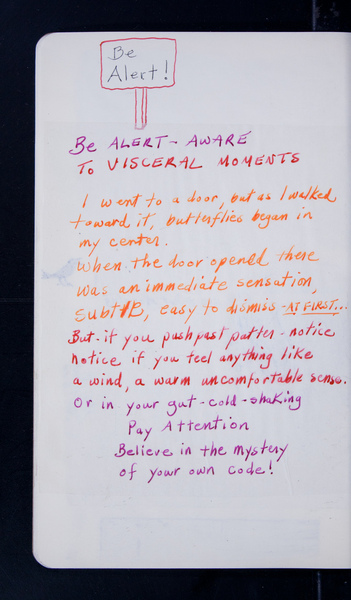 Be
Alert!
Be ALERT - AWARE
To VISCERAL MOMENTS
I went to a door, but as I walked
toward it, butterflies began in
my center.
When the door opened there
was an immediate sensation,
SUBTLE, easy to dismiss - AT FIRST...
But if you push past patter - notice
notice if you feel anything like
a wind, a warm uncomfortable sense.
Or in your gut - cold - shaking
Pay Attention
Believe in the mystery
of your own code!